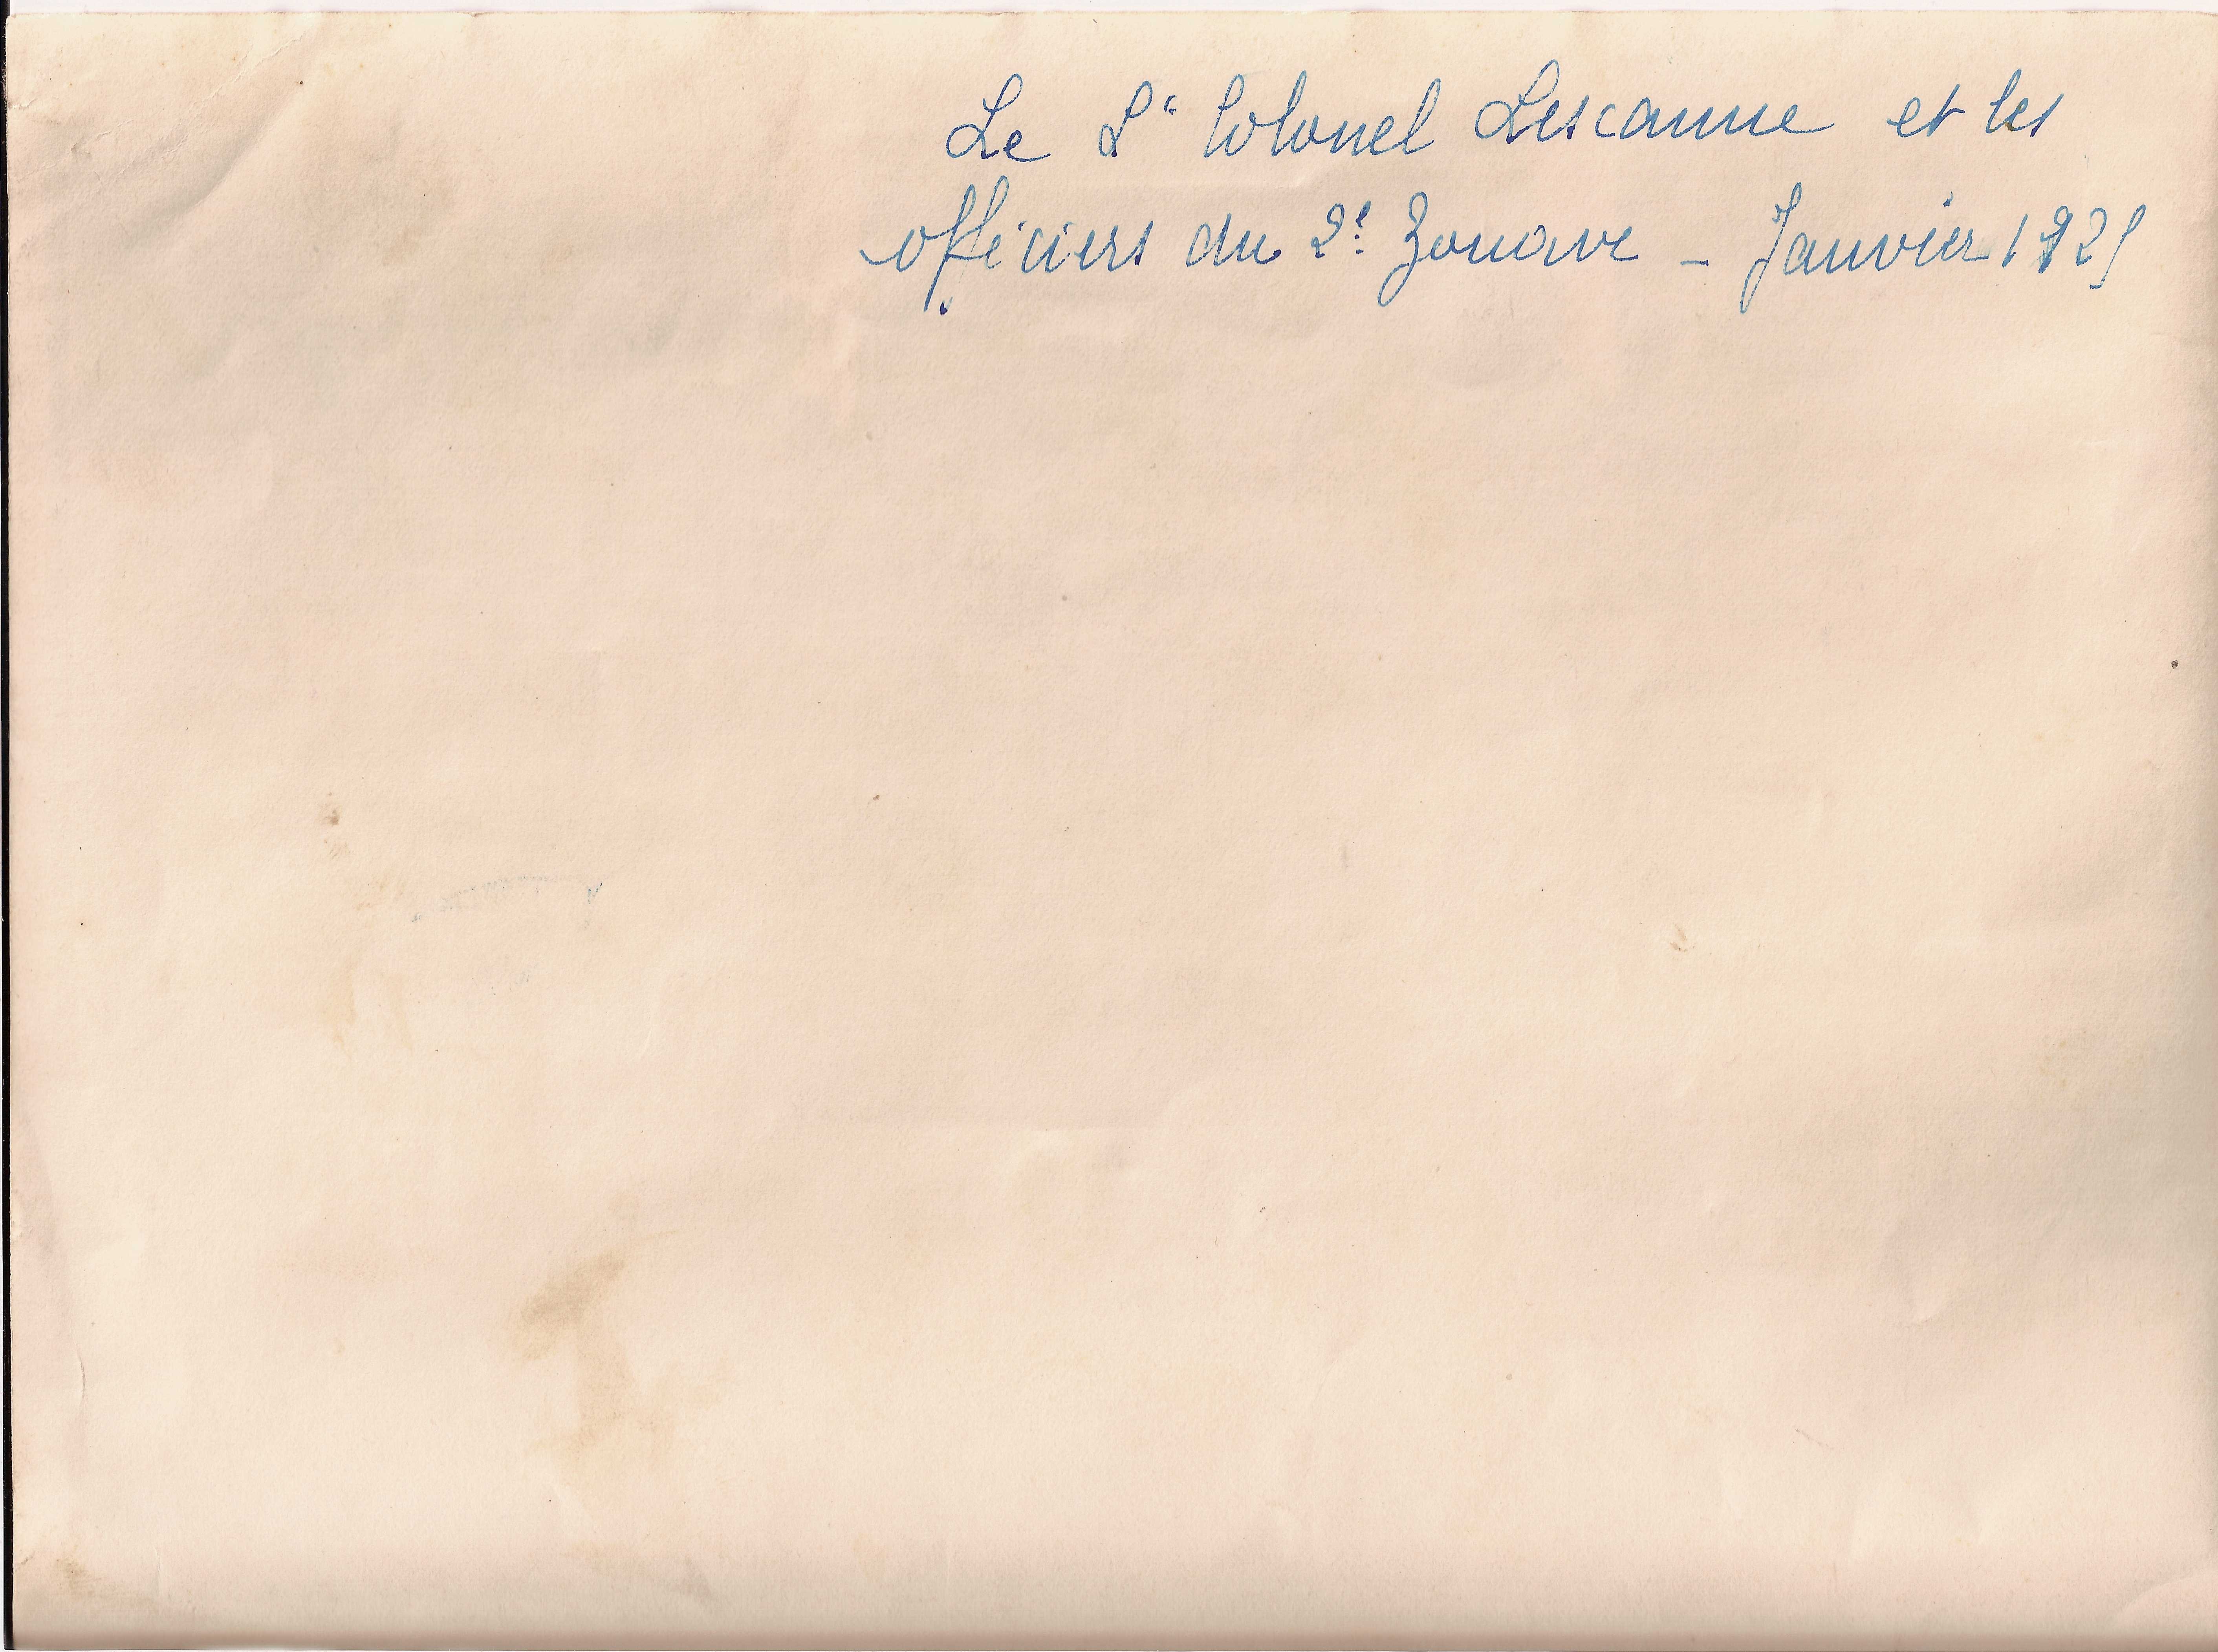 Le Lt Colonel Lescanne et les
officiers du 2e Zouave - Janvier 1925